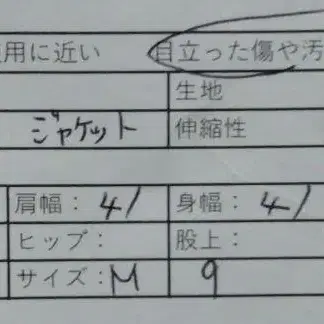 用に近い 目立った傷や汚
生地
ジャケット 伸縮性
肩幅: 41 身幅: 41
ヒップ: 股上:
サイズ:M 9